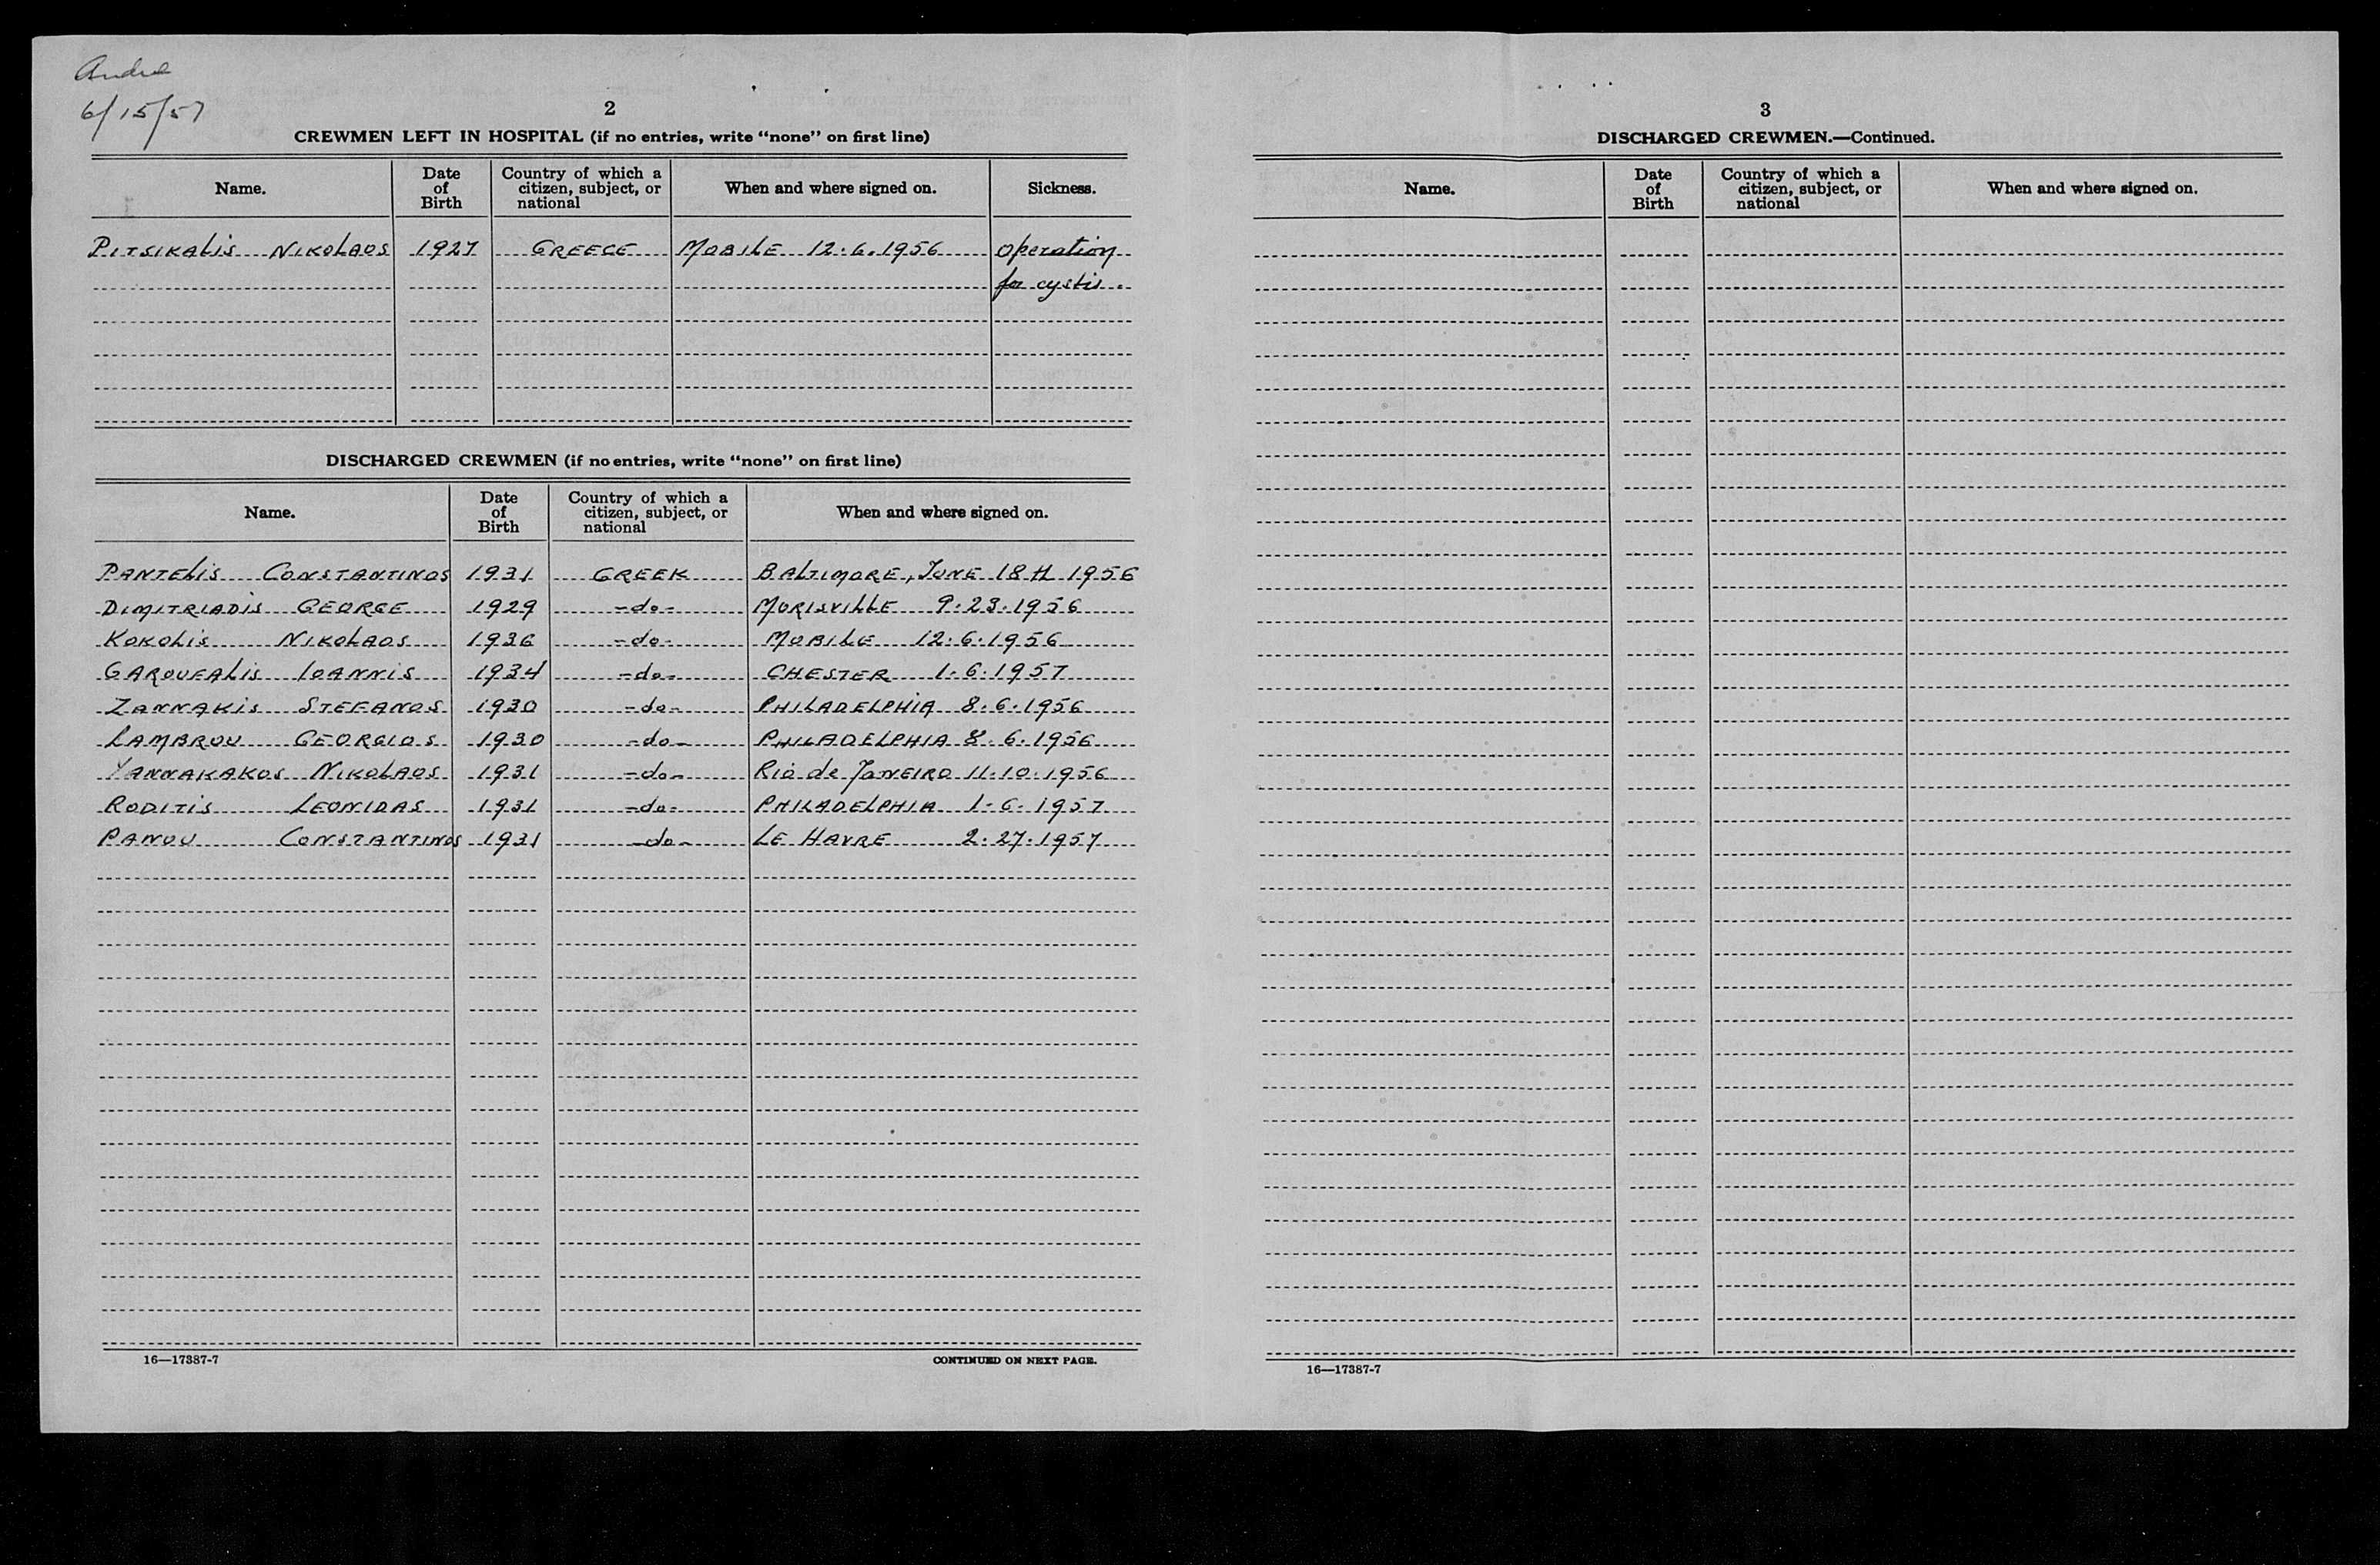 Andre
6/15/57
2
CREWMEN LEFT IN HOSPITAL (if no entries, write “none” on first line)
Name. Date of Birth Country of which a citizen, subject, or national When and where signed on. Sickness.
PITSIKALIS NIKOLAOS 1927 GREECE MOBILE 12.6.1956 operation
for cystis.
DISCHARGED CREWMEN (if no entries, write “none” on first line)
Name. Date of Birth Country of which a citizen, subject, or national When and where signed on.
PANTELIS CONSTANTINOS 1931 GREEK BALTIMORE, JUNE 18th 1956
DIMITRIADIS GEORGE 1929 -do- MORISVILLE 9.23.1956
KOKOLIS NIKOLAOS 1936 -do- MOBILE 12.6.1956
GAROUFALIS IOANNIS 1934 -do- CHESTER 1.6.1957
ZANNAKIS STEFANOS 1930 -do- PHILADELPHIA 8.6.1956
LAMBROU GEORGIOS 1930 -do- PHILADELPHIA 8.6.1956
YANNAKAKOS NIKOLAOS 1931 -do- Rio de JANEIRO 11.10.1956
RODITIS LEONIDAS 1931 -do- PHILADELPHIA 1.6.1957
PANOU CONSTANTINOS 1931 -do- LE HAVRE 2.27.1957
16—17387-7 CONTINUED ON NEXT PAGE.
3
DISCHARGED CREWMEN.—Continued.
Name. Date of Birth Country of which a citizen, subject, or national When and where signed on.
16—17387-7